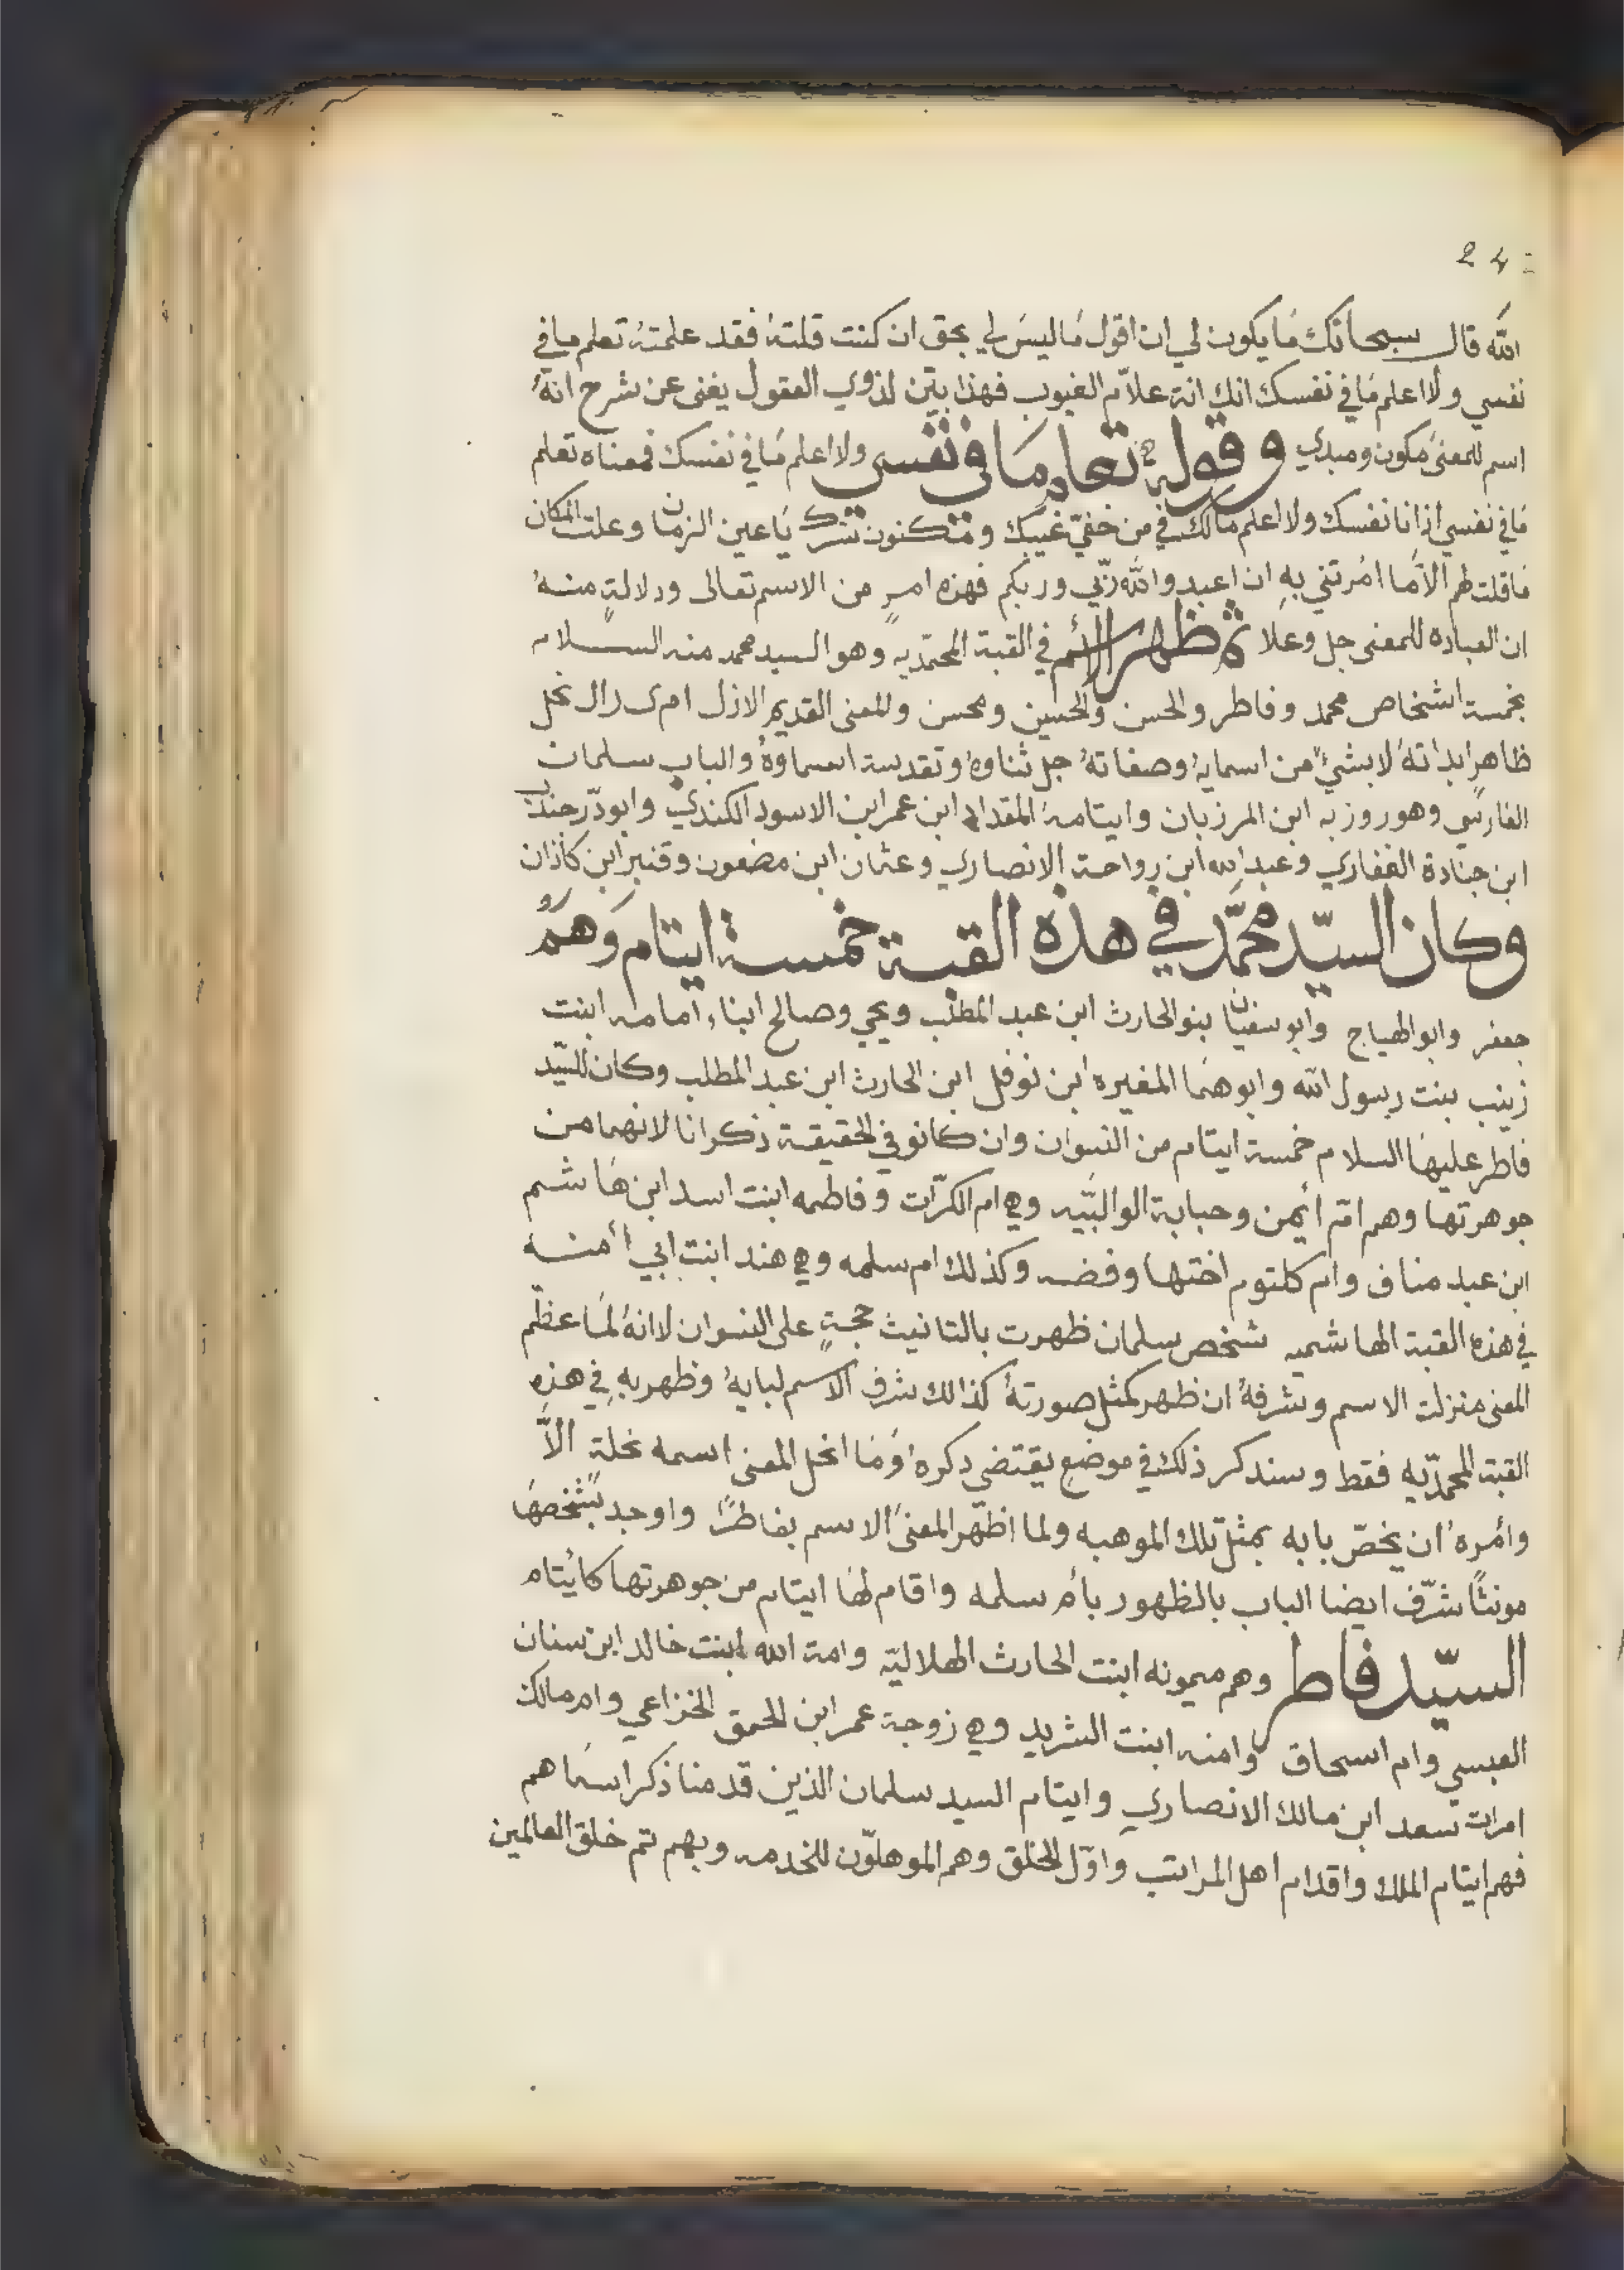 24
الله قال سبحانك مَا يكون لي ان اقول مَا ليسَ لي بحق ان كنت قلتهُ فقد علمتهُ تعلم ما في
نفسي ولا اعلم مَا في نفسك انك انة علاّم الغيوب فهذا بيّن لذوي العقول يغنى عن شرح انهُ
اسم للمعنىَ مكون ومبدي وقوله تعلم مَا في نفسي ولا اعلم مَا في نفسك فمعناه تعلم
مَا في نفسي اذ انا نفسك ولا اعلم مالك في من خفيّ غيبك ومكنون سرك يَا عين الزمان وعلت المكان
مَا قلت لهم الاّ مَا امُرتني بهِ ان اعبدو الله ربّي وربكم فهذه امرٍ من الاسم تعالى ودلالةٍ منهُ
ان العباده للمعنى جل وعلا ثم ظهر الاسم في القبة المحمّديه وهو السيد محمد منه السلام
بخمسة اشخاص محمد وفاطر والحسن والحسين ومحسن وللمعنى القديم الازل
ظاهرا بداتهُ لا بشيءٌ من اسمايهُ وصفاتهُ جل ثناوهُ وتقدسة اسماوهُ والباب سلمان
الفارسي وهو روزبه ابن المرزبان وايتامهُ المقداد ابن عمر ابن الاسود الكندي وابو ذّر جندب
ابن جنادة الغفاري وعبد الله ابن رواحة الانصاري وعثمان ابن مضعون وقنبر ابن كاذان
وكان السيّد محمّد في هذه القبة خمسة ايتام وَهمَ
جعفر وابو الهياج وابو سفيان بنو الحارث ابن عبد المطلب ويحي وصالح ابناء امامه ابنت
زينب بنت رسول الله وابوهمَا المغيره ابن نوفل ابن الحارث ابن عبد المطلب وكان للسيّد
فاطر عليهَا السلام خمسة ايتام من النسوان وان كانو في الحقيقة ذكرانا لانهما من
جوهرتها وهم امّ ائمن وحبابة الوالبيّه وهي ام الكرّات وفاطمه ابنت اسد ابن هَاشم
ابن عبد مناف وام كلتوم اختها وفضه وكذلك ام سلمه وهي هند ابنت ابي أمنه
في هذه القبة الهاشميه شخص سلمان ظهرت بالتانيث حجةٍ على النسوان لاانهُ لمَا عظّم
المعنى منزلت الاسم وشرفهُ ان ظهر كمثل صورتهُ كذالك شرف الاسم لبابهُ وظهر بهِ في هذه
القبة المحمدّيه فقط وسندكر ذلك في موضع يقتضي دكرهُ وَمَا انحل المعنى اسمه نحلةٍ الاَّ
وامُرهُ ان يخصّ بابه بمثل تلك الموهبه ولما اظهر المعنىَ الاسم بفاطرً واوجد بشخصهَا
مونثًا شرّف ايضا الباب بالظهور بام سلمه واقام لهَا ايتام من جوهرتها كائتام
السيّد فاطر وهم ميمونه ابنت الحارث الهلاليّه وامة الله ابنت خالد ابن سنان
العبسي وام اسحاق وامنه ابنت الشريد وهي زوجة عمر ابن الحمق الخزاعي وام مالك
امرات سعد ابن مالك الانصاري وايتام السيد سلمان الذين قدمنا ذكر اسمَاهم
فهم ايتام الملك واقدام اهل المراتب واوّل الخلق وهم الموهلوّن للخدمه وبهم تم خلق العالمين